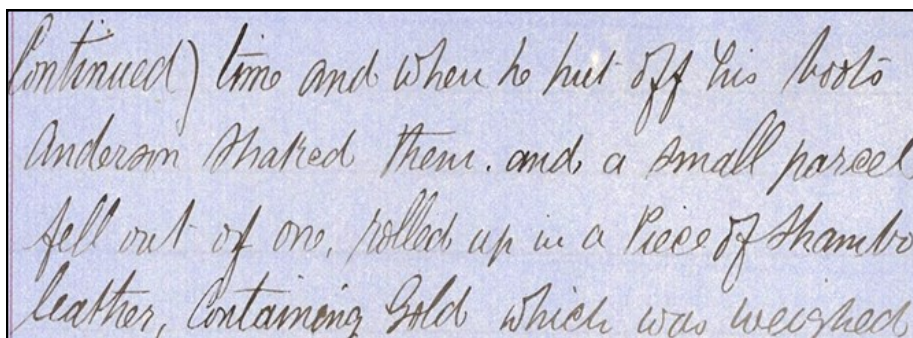 Continued) time and when he put off his boots
Anderson shaked them. and a small parcel
fell out of one, rolled up in a Piece of Shambo
leather, Containing Gold which was weighed